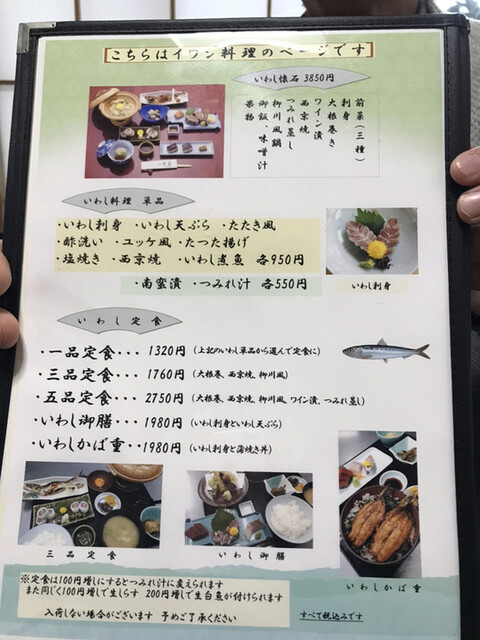 こちらはイワシ料理のページです
いわし懐石 3850円
前菜(三種)
刺身
大根巻き
ワイン漬
西京焼
つみれ蒸し
柳川風鍋
御飯、味噌汁
果物
いわし料理 単品
・いわし刺身 ・いわし天ぷら ・たたき風
・酢洗い ・ユッケ風 ・たつた揚げ
・塩焼き ・西京焼 ・いわし煮魚 各950円
・南蛮漬 ・つみれ汁 各550円
いわし刺身
いわし定食
・一品定食・・・ 1320円 (上記のいわし単品から選んで定食に)
・三品定食・・・ 1760円 (大根巻、西京焼、柳川風)
・五品定食・・・ 2750円 (大根巻、西京焼、柳川風、ワイン漬、つみれ蒸し)
・いわし御膳・・・1980円 (いわし刺身といわし天ぷら)
・いわしかば重・・1980円 (いわし刺身と蒲焼き丼)
三品定食
いわし御膳
いわしかば重
※定食は100円増しにするとつみれ汁に変えられます
また同じく100円増しで生しらす 200円増しで生白魚が付けられます
入荷しない場合がございます 予めご了承ください
すべて税込みです